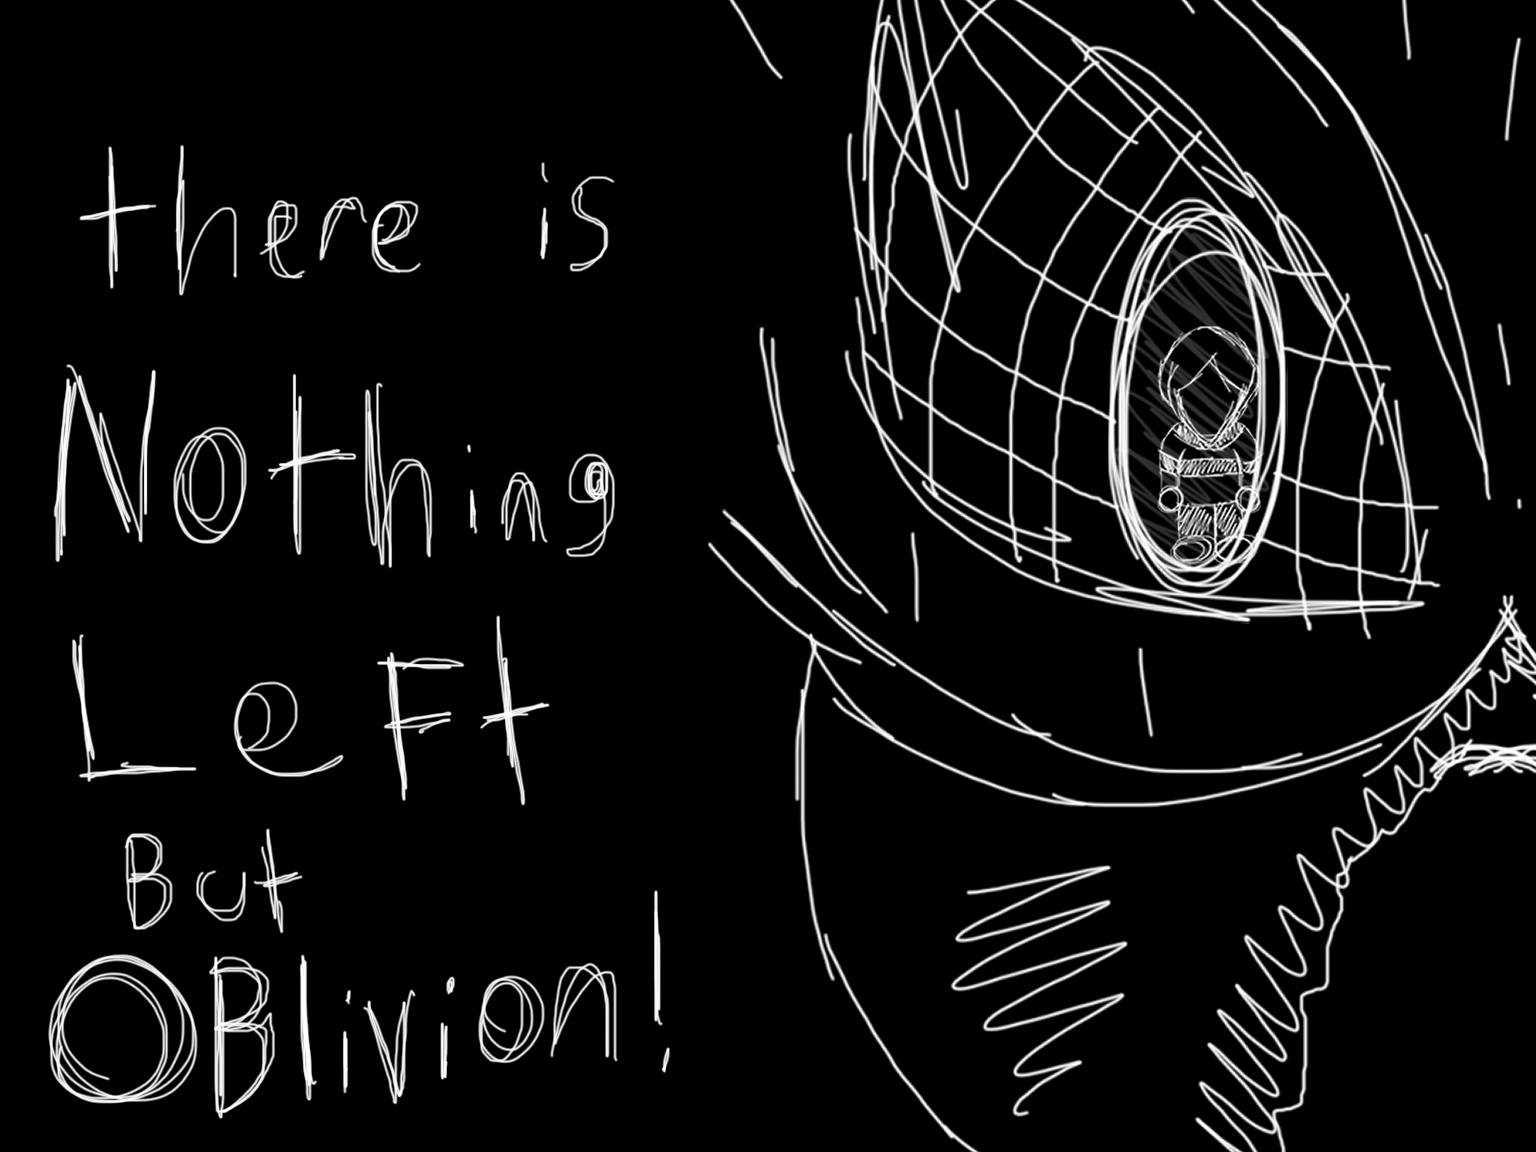 there is
Nothing
LeFt
But
OBlivion!